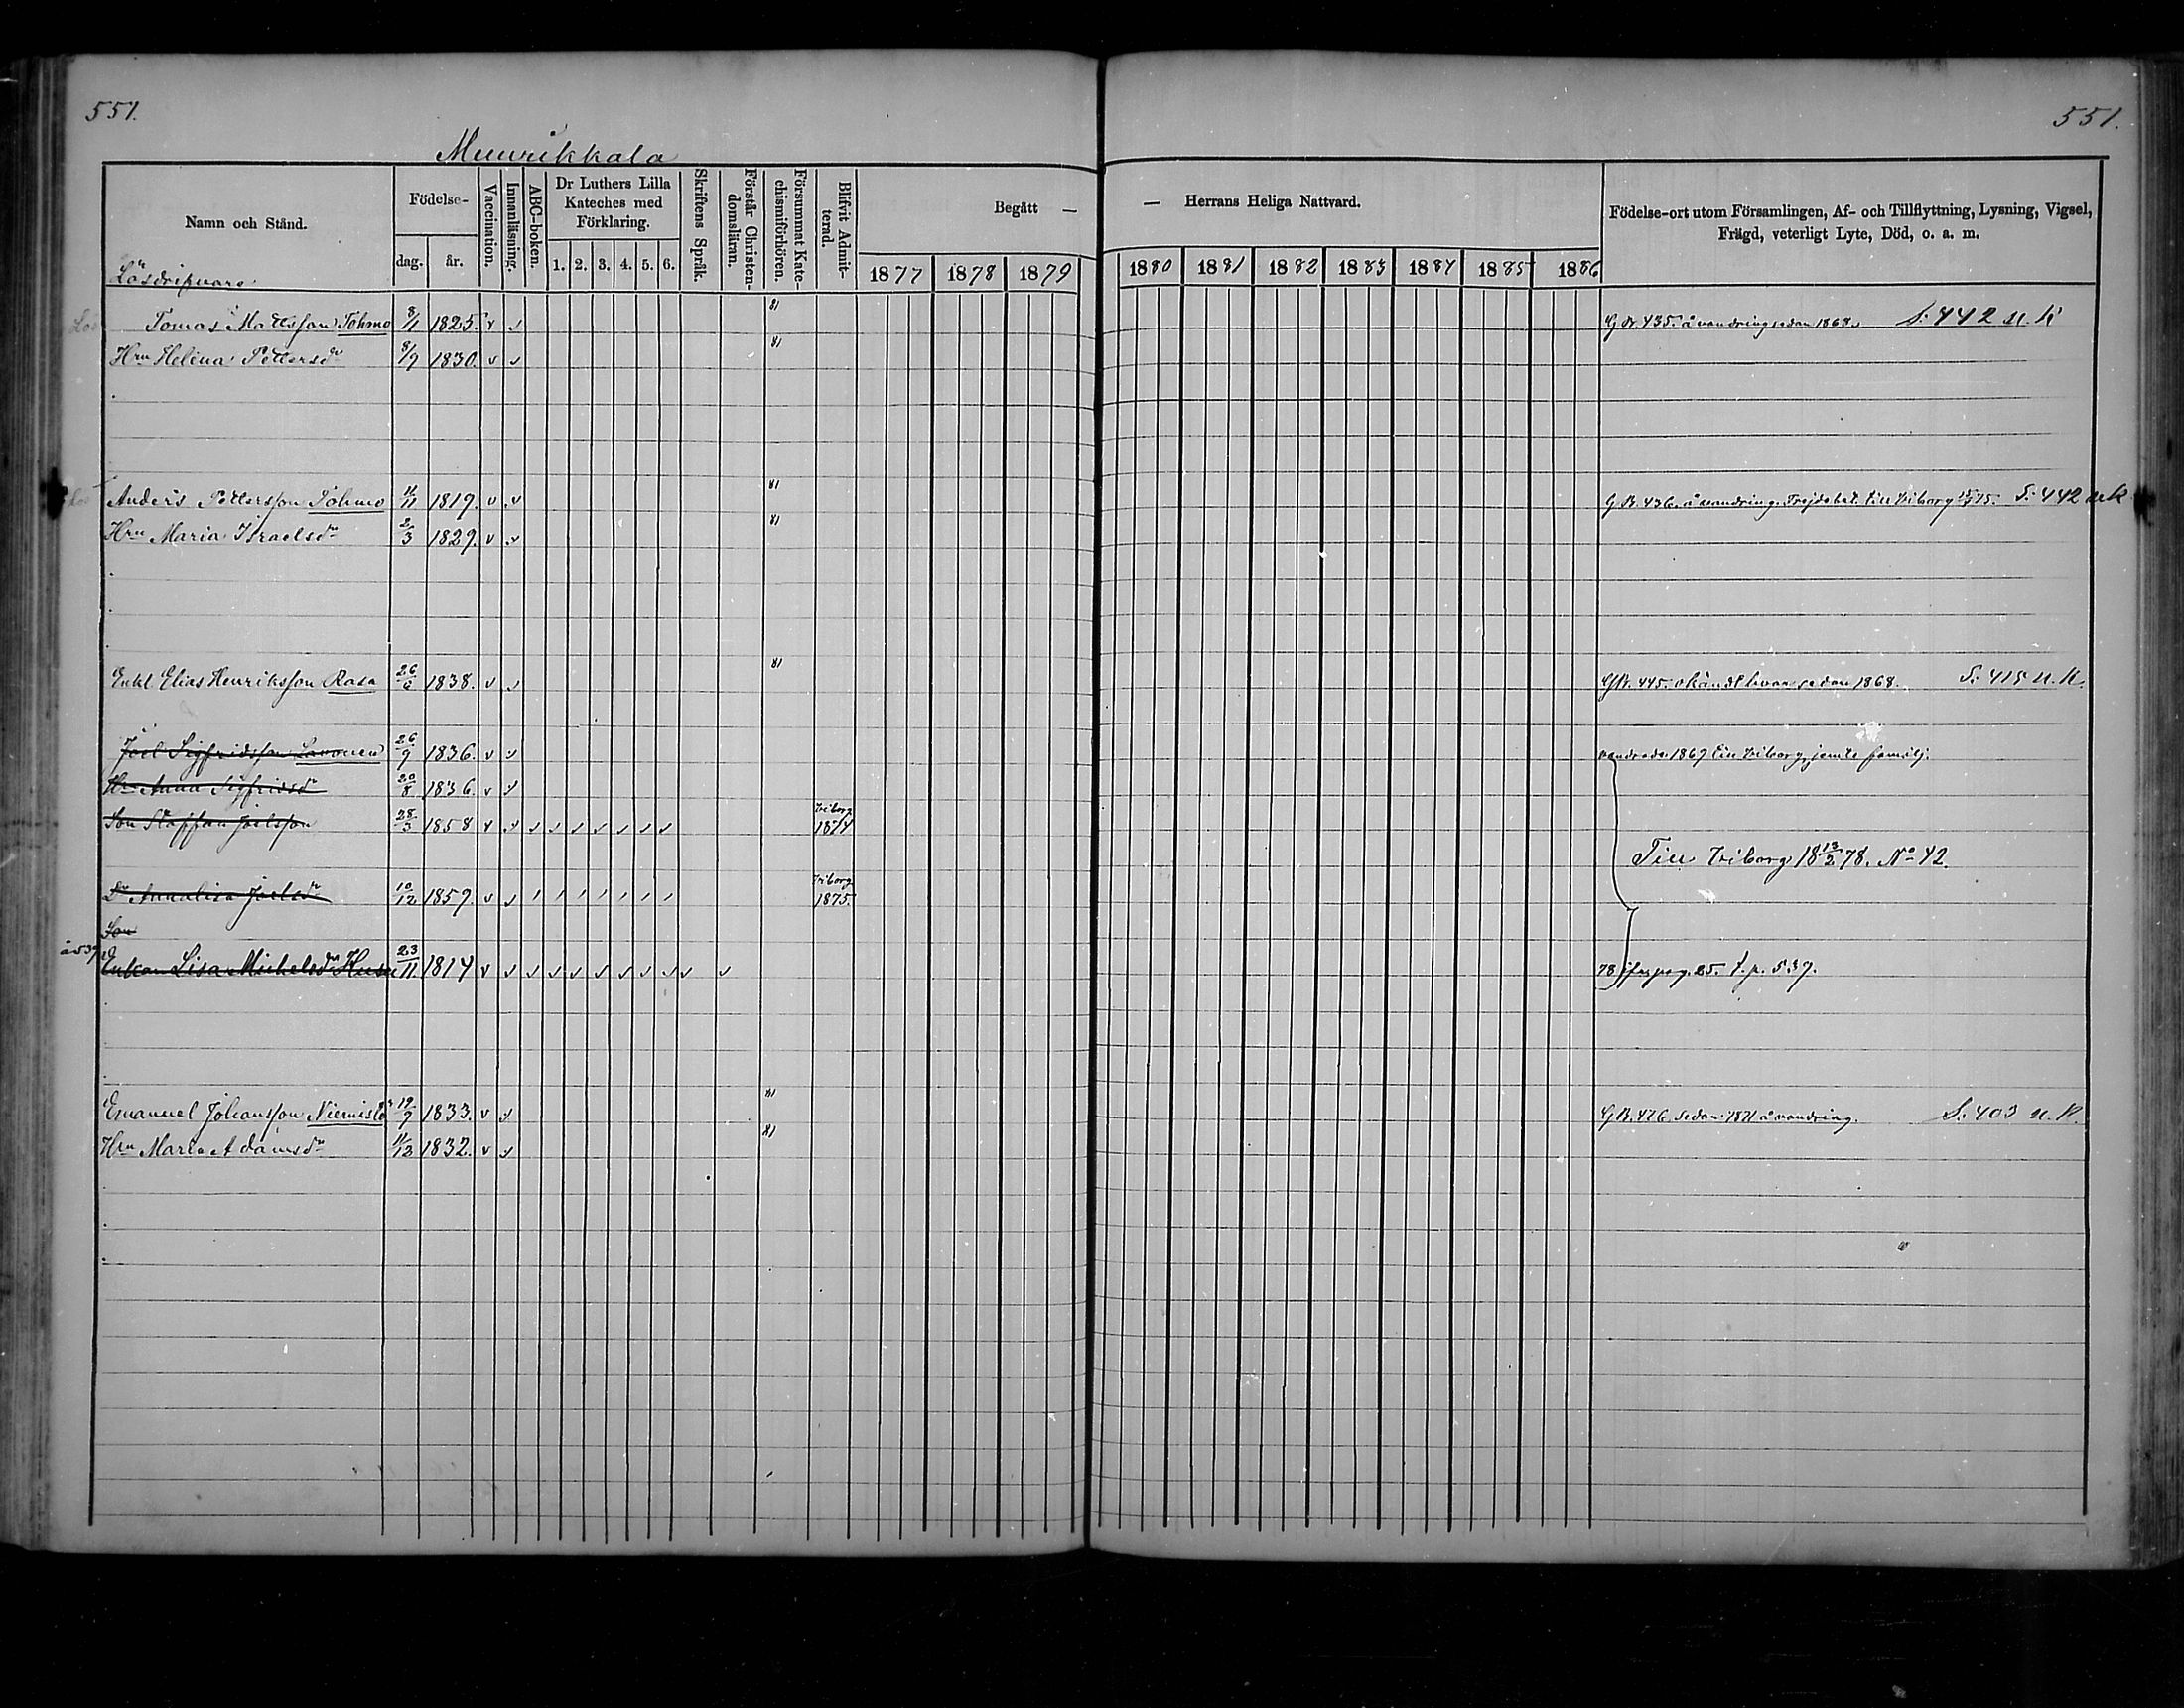 551.
551.
Muurikkala
Namn och Stånd.
Födelse-
dag.
år.
Vaccination.
Innanläsning.
ABC-boken.
Dr Luthers Lilla Kateches med Förklaring.
1. 2. 3. 4. 5. 6.
Skriftens Språk.
Förstår Christen-domsläran.
Försummat Kate-chismiförhören.
Blifvit Admit-terad.
Begått —
— Herrans Heliga Nattvard.
1877 1878 1879 1880 1881 1882 1883 1884 1885 1886
Födelse-ort utom Församlingen, Af- och Tillflyttning, Lysning, Vigsel, Frägd, veterligt Lyte, Död, o. a. m.
Lösdrifvare
Tomas Mattsson Tohmo 8/11 1825. v v 81 G. B. 435. å vandring sedan 1868. S. 442 u. K
Hru Helena Pettersdr 8/9 1830. v v 81
Anders Pettersson Tohmo 11 1819. v v 81 G. B. 436. å vandring. Frejdebet. till Wiborg 75. S. 442 u K
Hru Maria Israelsdr 2/3 1829. v v 81
Enkl Elias Henriksson Rasa 26 1838. v v 81 G. B. 445. okändt hvar sedan 1868. S. 415 u. K.
Joel Sigfridsson Lavonen 26/9 1836. v v vandrade 1867 till Wiborg jemte familj.
Hr Anna Sigfridsdr 20/8 1836. v v
Son Staffan Joelsson 28/3 1858 v v v v v v v v v Wiborg 1874
Till Wiborg 18 13/2 78. No 42.
Dr Annalisa Joelsdr 10/12 1859. v v Wiborg 1875.
Son
å 539 Enkan Lisa Michelsdr Husu 23/11 1814 v v v v v v v v v v v 78 p. 539.
Emanuel Johansson Niemistö 19/9 1833. v v 81 G. B. 476. sedan 1871 å vandring. S. 403 u. K.
Hru Maria Adamsdr 11/12 1832. v v 81